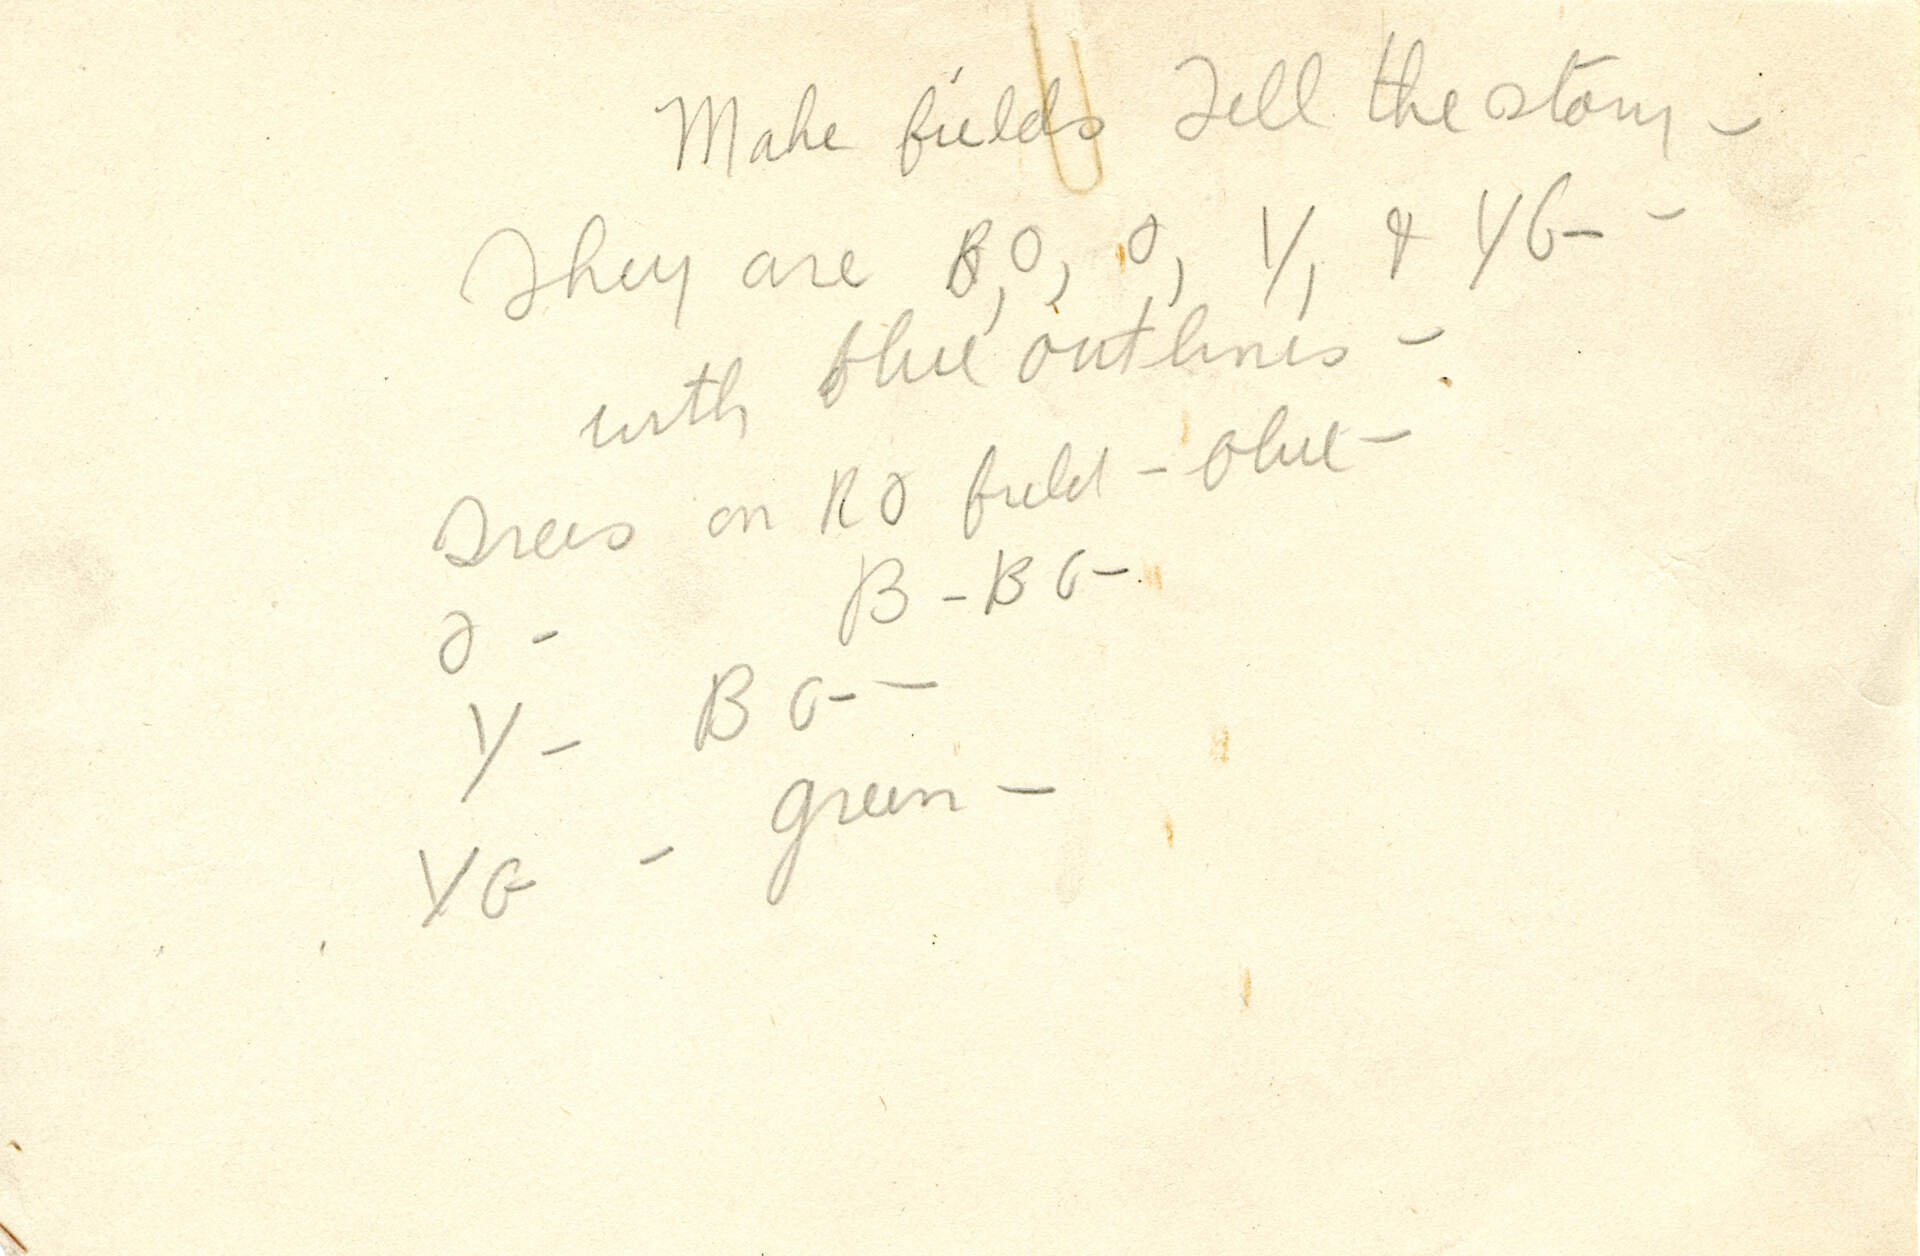 Make fields Tell the story -
They are B, O, O, Y, & YG -
with blue outlines -
Trees on RO field - blue -
O - B - BG -
Y - BG -
YG - green -